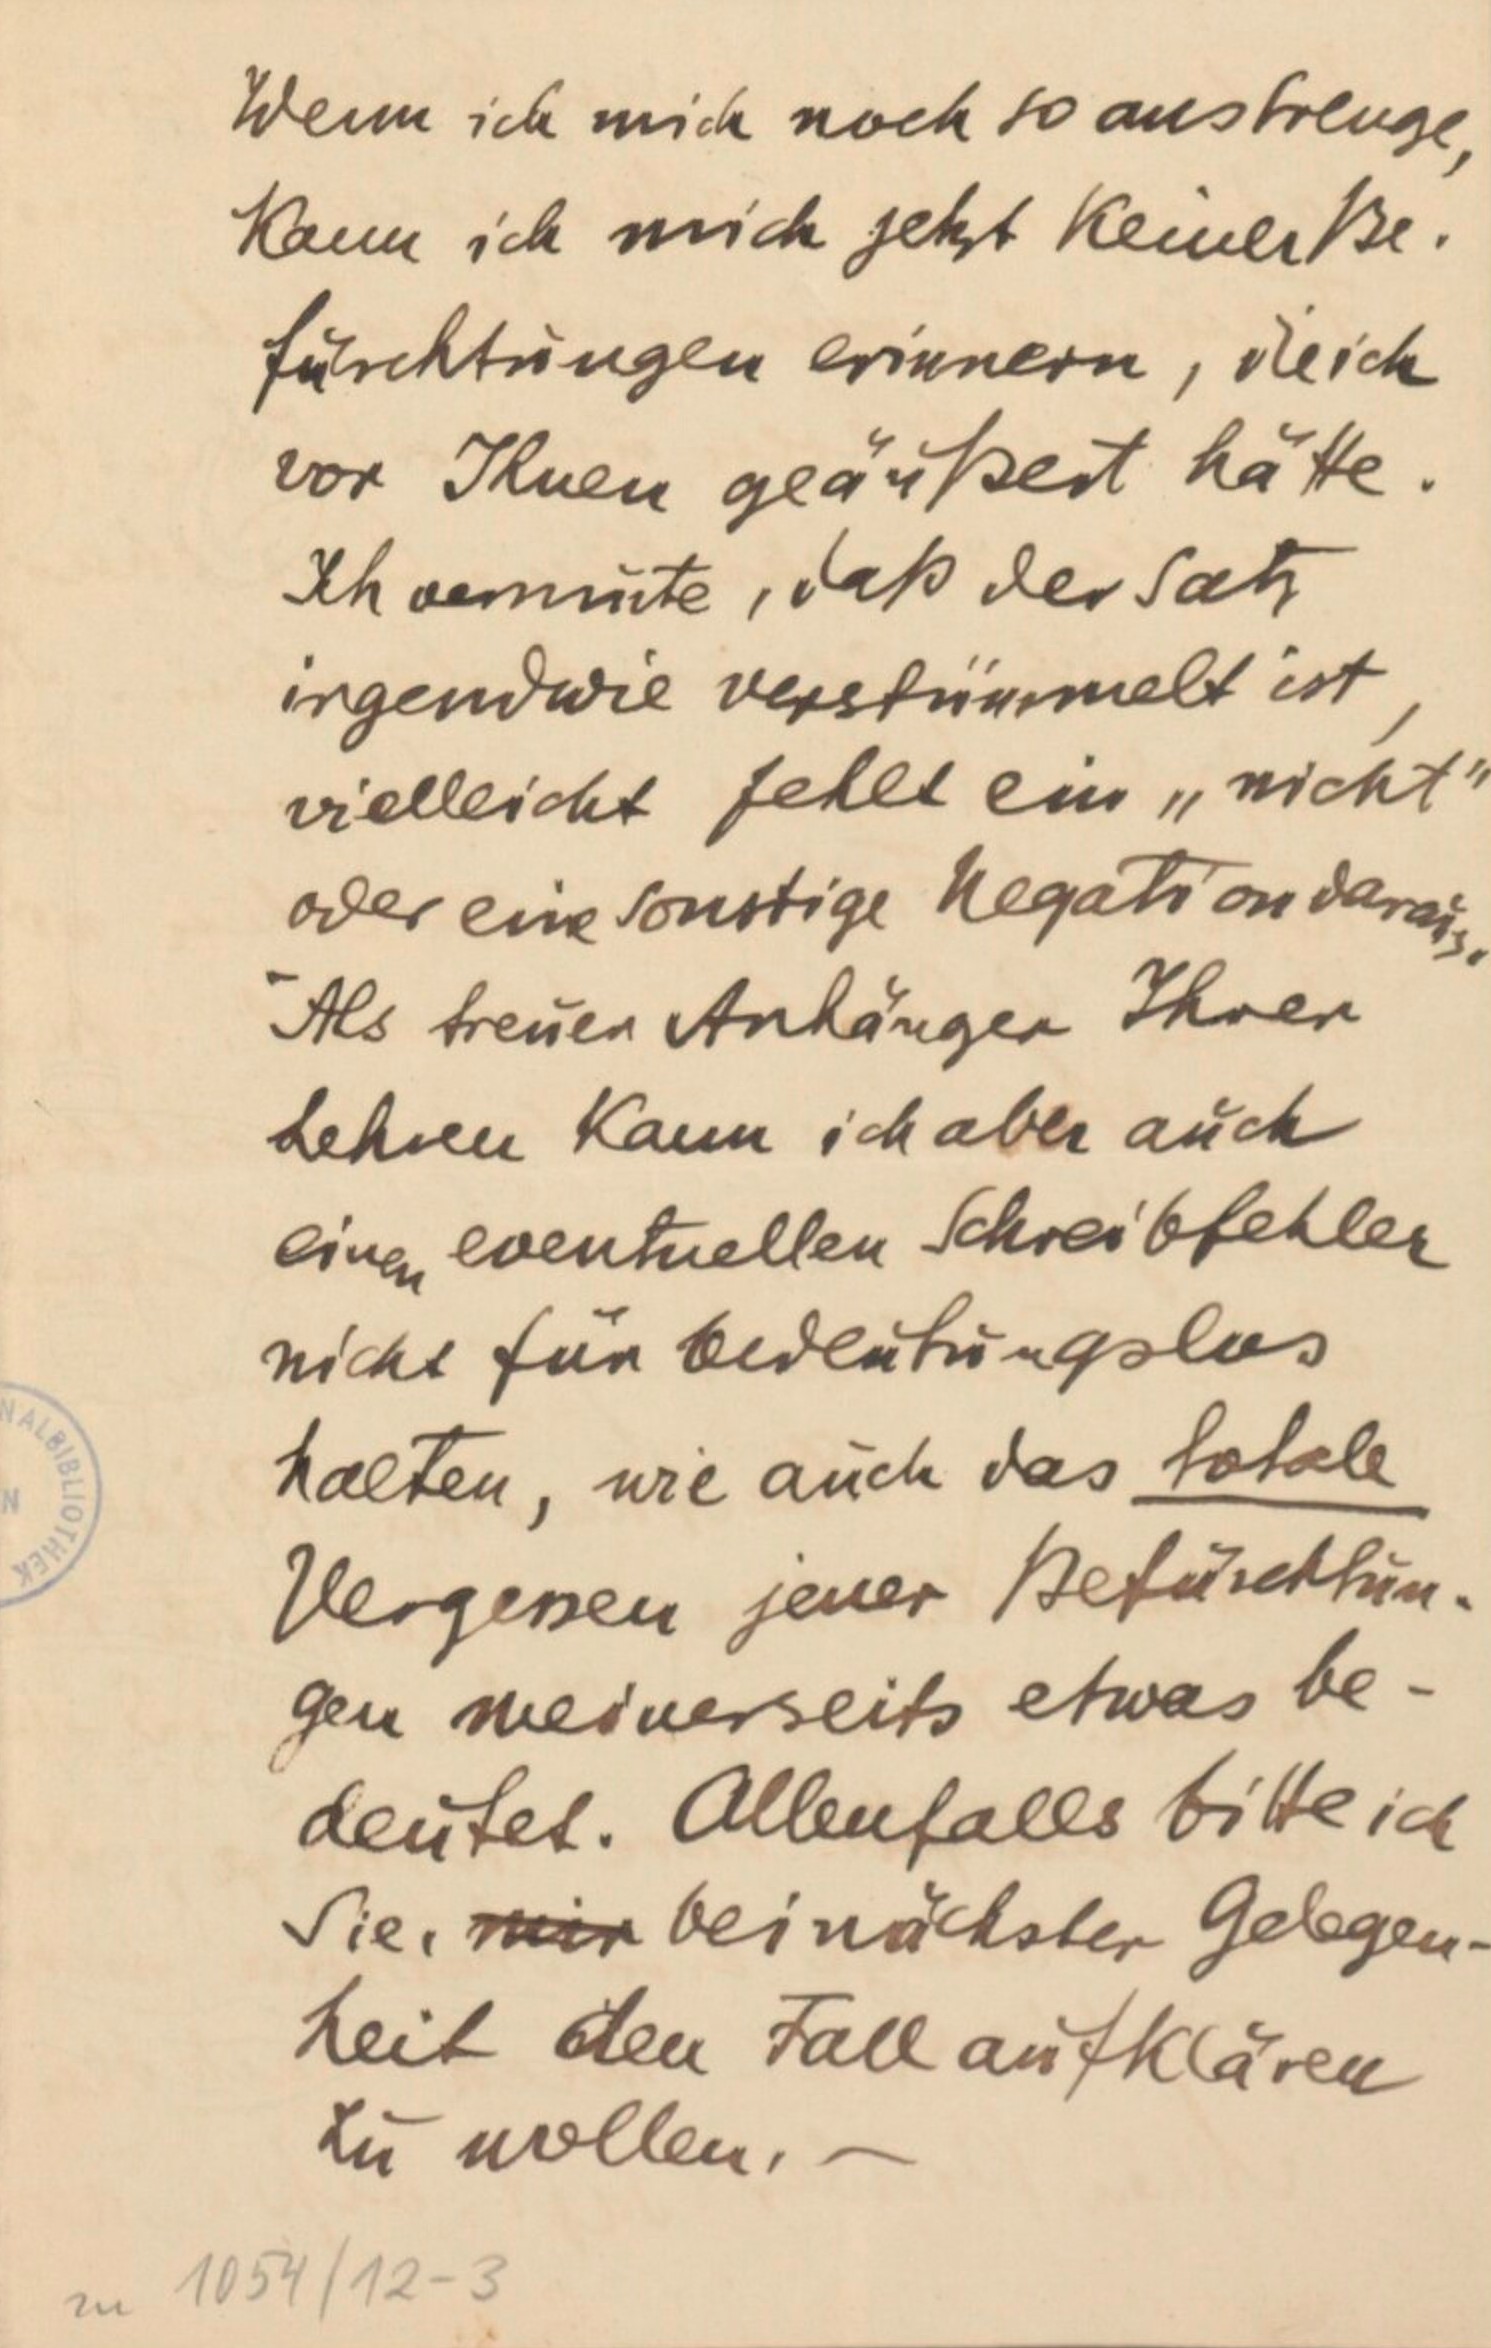 Wenn ich mich noch so anstrenge,
kann ich mich jetzt keiner Be-
fürchtungen erinnern, die ich
vor Ihnen geäußert hätte.
Ich vermute, daß der Satz
irgendwie verstümmelt ist,
vielleicht fehlt ein „nicht"
oder eine sonstige Negation daraus.
- Als treuer Anhänger Ihrer
Lehren kann ich aber auch
einen eventuellen Schreibfehler
nicht für bedeutungslos
halten, wie auch das totale
Vergessen jener Befürchtun-
gen meinerseits etwas be-
deutet. Allenfalls bitte ich
Sie, mir bei nächster Gelegen-
heit den Fall aufklären
zu wollen. —
NALBIBLIOTHEK
N
zu 1054/12-3